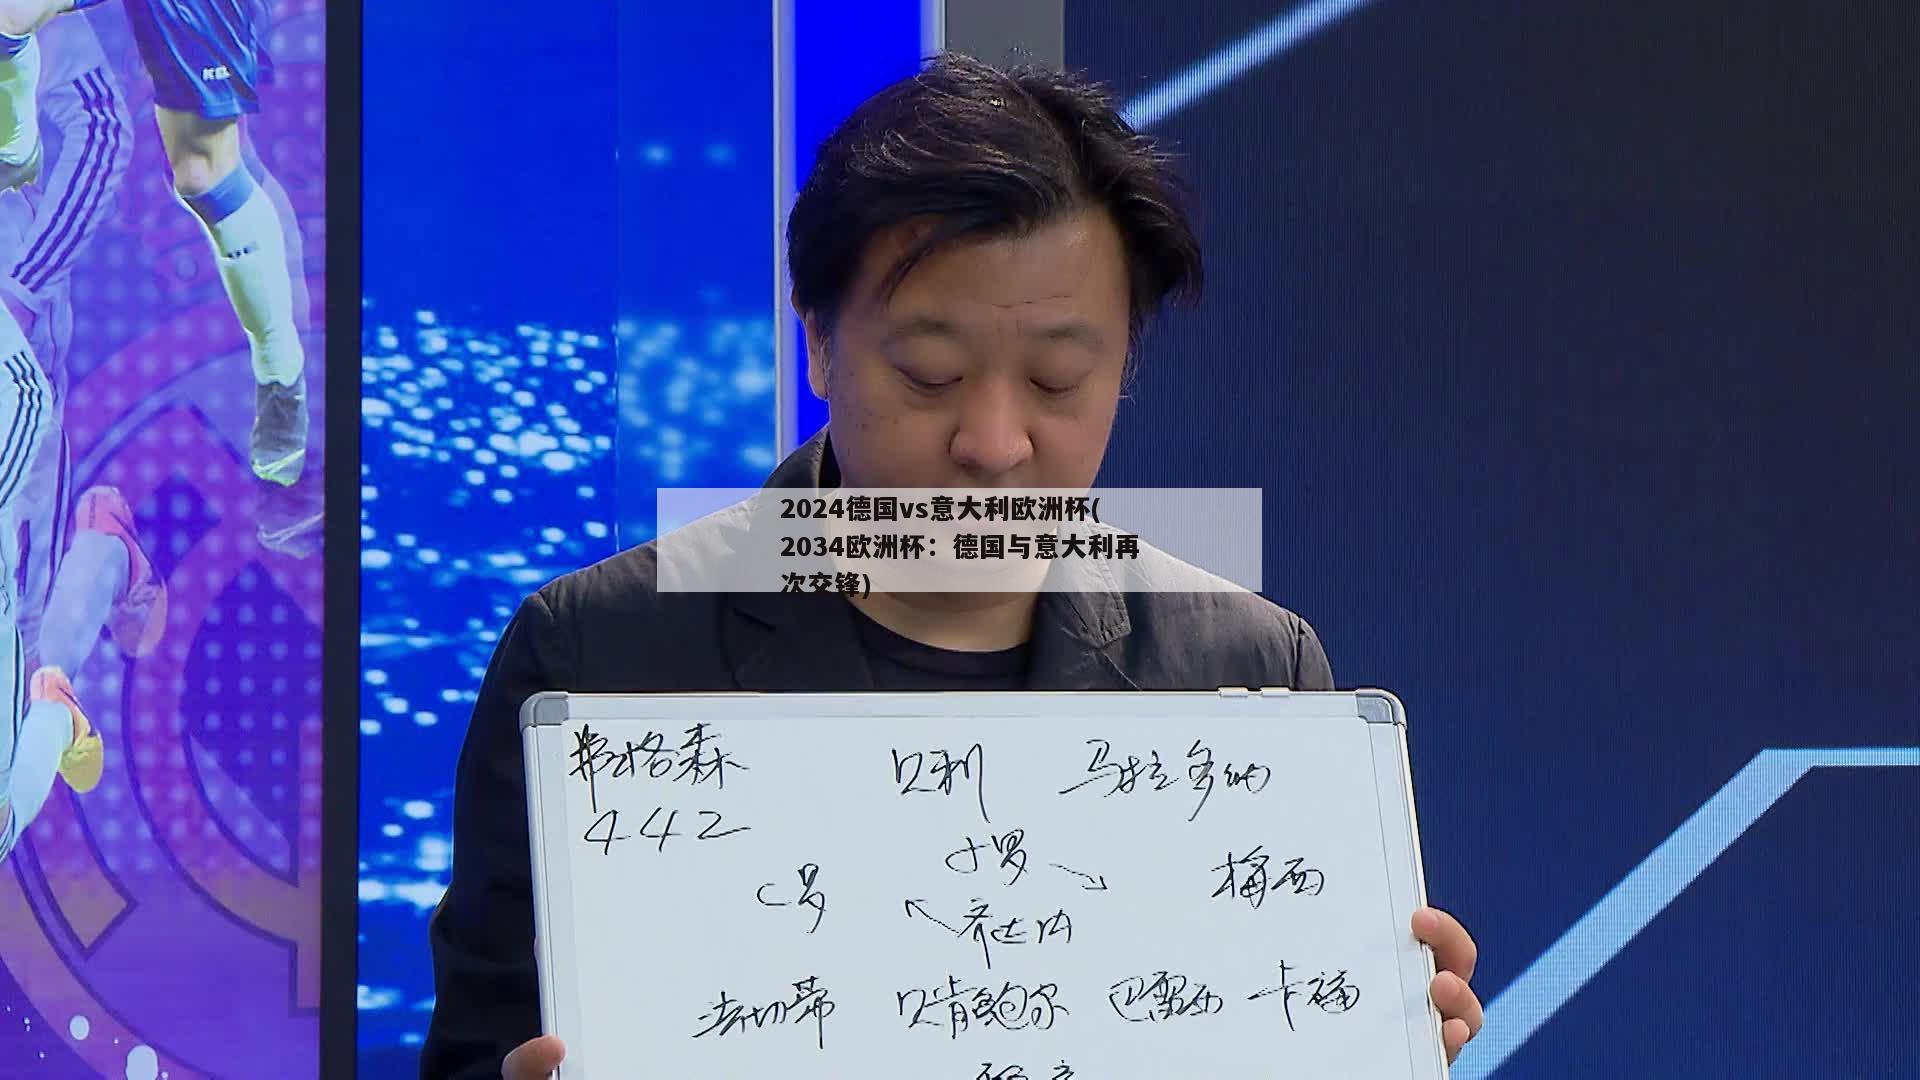 2024德国vs意大利欧洲杯(
2034欧洲杯：德国与意大利再
次交锋)
弗格森 贝利 马拉多纳
442
小罗
C罗 梅西
齐达内
法切蒂 贝肯鲍尔 巴雷西 卡福